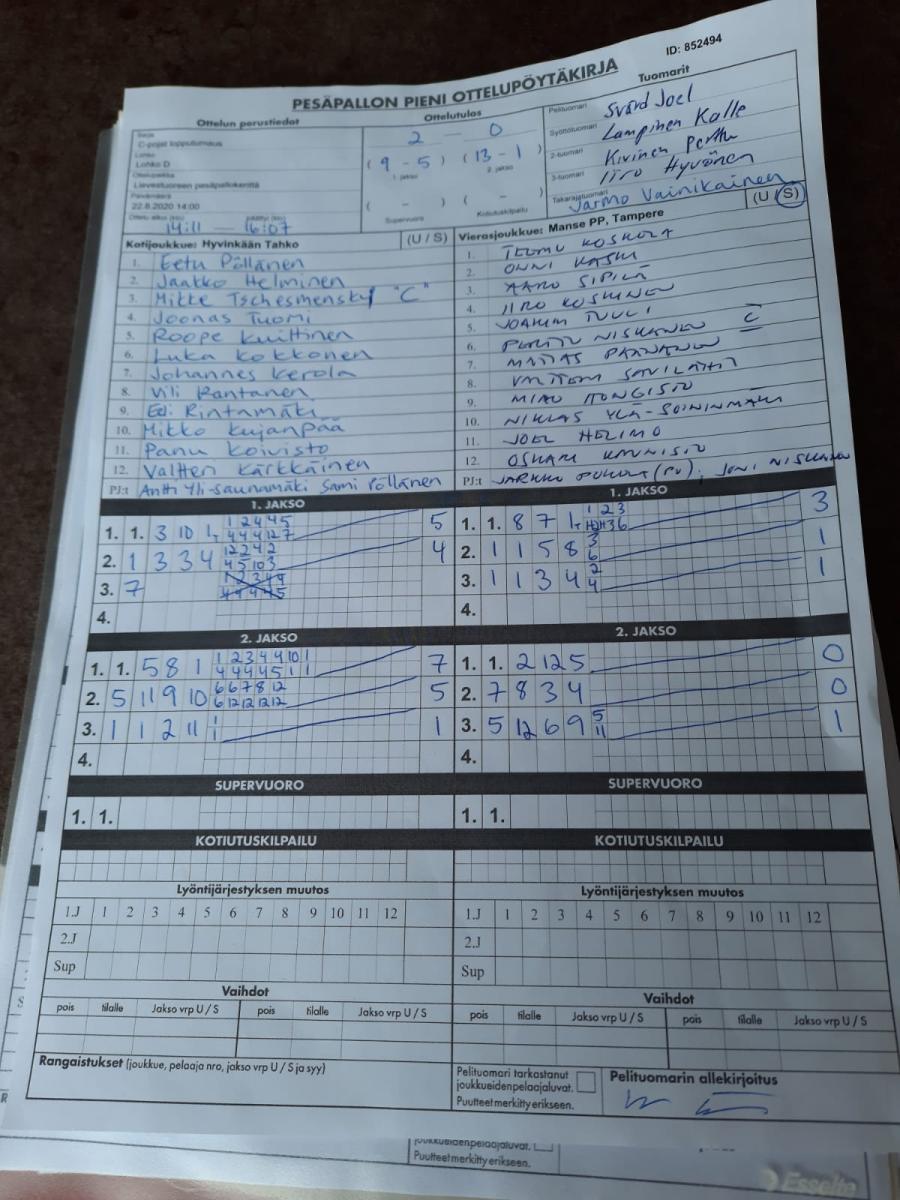 ID: 852494
PESÄPALLON PIENI OTTELUPÖYTÄKIRJA
Ottelun perustiedot
Sarja
C-pojat lopputurnaus
Lohko
Lohko D
Ottelupaikka
Lievestuoreen pesäpallokenttä
Päivämäärä
22.8.2020 14:00
Ottelu alkoi (klo) päättyi (klo)
14:11 — 16:07
Ottelutulos
2 — 0
( 9 - 5 ) ( 13 - 1 )
1. jakso 2. jakso
( - ) ( - )
Supervuoro Kotiutuskilpailu
Tuomarit
Pelituomari Svärd Joel
Syöttötuomari Lampinen Kalle
2-tuomari Kivinen Perttu
3-tuomari Iiro Hyvönen
Takarajatuomari Jarmo Vainikainen
Kotijoukkue: Hyvinkään Tahko (U / S)
1. Eetu Pöllänen
2. Jaakko Helminen
3. Mikke Tschesmensky "C"
4. Joonas Tuomi
5. Roope Kuittinen
6. Luka Kokkonen
7. Johannes Kerola
8. Vili Rantanen
9. Eeli Rintamäki
10. Mikko Kujanpää
11. Panu Koivisto
12. Valtteri Kärkkäinen
PJ:t Antti Yli-Saunamäki Sami Pöllänen
Vierasjoukkue: Manse PP, Tampere (U / S)
1. TEEMU KOSKELA
2. ONNI KASKI
3. AARO SIPILÄ
4. IIRO KOSKINEN
5. JOAKIM TUULI
6. PERTTU NISKANEN C
7. MATIAS PAANANEN
8. VALTTERI SAVILAHTI
9. MIAO
10. NIKLAS YLÄ-SOININMÄKI
11. JOEL HELIMO
12. OSKARI KAUNISTO
PJ:t JARKKO (PV), JONI NISKANEN
1. JAKSO
1. 1. 3 10 1 1 2 4 4 5 5
4 4 4 12 7
2. 1 3 3 4 12 2 4 2 4
4 5 10 3
3. 7 1 2 3 4 4
4 4 4 4 5
4.
1. JAKSO
1. 1. 8 7 1 1 2 3 3
2. 1 1 5 8 3 1
6
3. 1 1 3 4 2 1
4
4.
2. JAKSO
1. 1. 5 8 1 1 2 3 4 4 10 1 7
4 4 4 4 5 1 1
2. 5 11 9 10 6 6 7 8 12 5
6 12 12 12 12
3. 1 1 2 11 1 1
1
4.
2. JAKSO
1. 1. 2 12 5 0
2. 7 8 3 4 0
3. 5 12 6 9 5 1
11
4.
SUPERVUORO
1. 1.
SUPERVUORO
1. 1.
KOTIUTUSKILPAILU
KOTIUTUSKILPAILU
Lyöntijärjestyksen muutos
1.J 1 2 3 4 5 6 7 8 9 10 11 12
2.J
Sup
Lyöntijärjestyksen muutos
1.J 1 2 3 4 5 6 7 8 9 10 11 12
2.J
Sup
Vaihdot
pois tilalle Jakso vrp U / S pois tilalle Jakso vrp U / S
Vaihdot
pois tilalle Jakso vrp U / S pois tilalle Jakso vrp U / S
Rangaistukset (joukkue, pelaaja nro, jakso vrp U / S ja syy)
Pelituomari tarkastanut
joukkueidenpelaajaluvat.
Puutteet merkitty erikseen.
Pelituomarin allekirjoitus
joukkueidenpelaajaluvat.
Puutteet merkitty erikseen.
Esselte